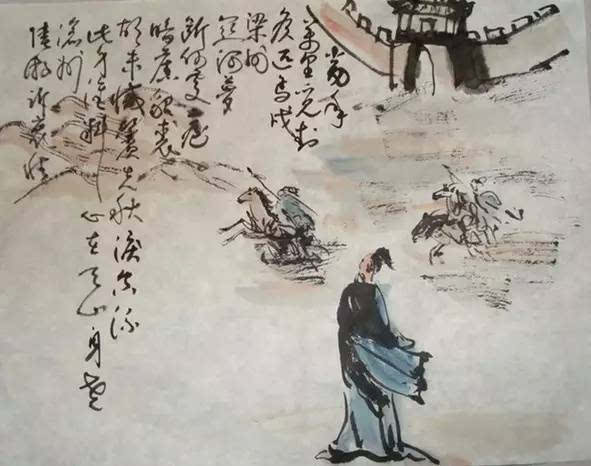 当年
萬里觅封
侯匹马戍
梁州
关河夢
断何处尘
暗旧貂裘
胡未滅鬓先秋淚空流
此身谁料心在天山身老
滄州
陆游诉衷情